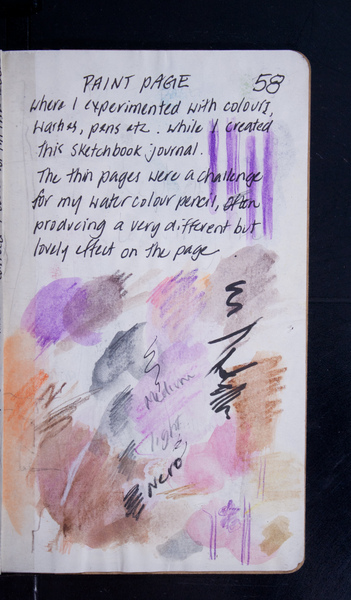 PAINT PAGE 58
where I experimented with colours,
washes, pens etc. while I created
this sketchbook journal.
The thin pages were a challenge
for my watercolour pencils, often
producing a very different but
lovely effect on the page
Medium
light
Nero